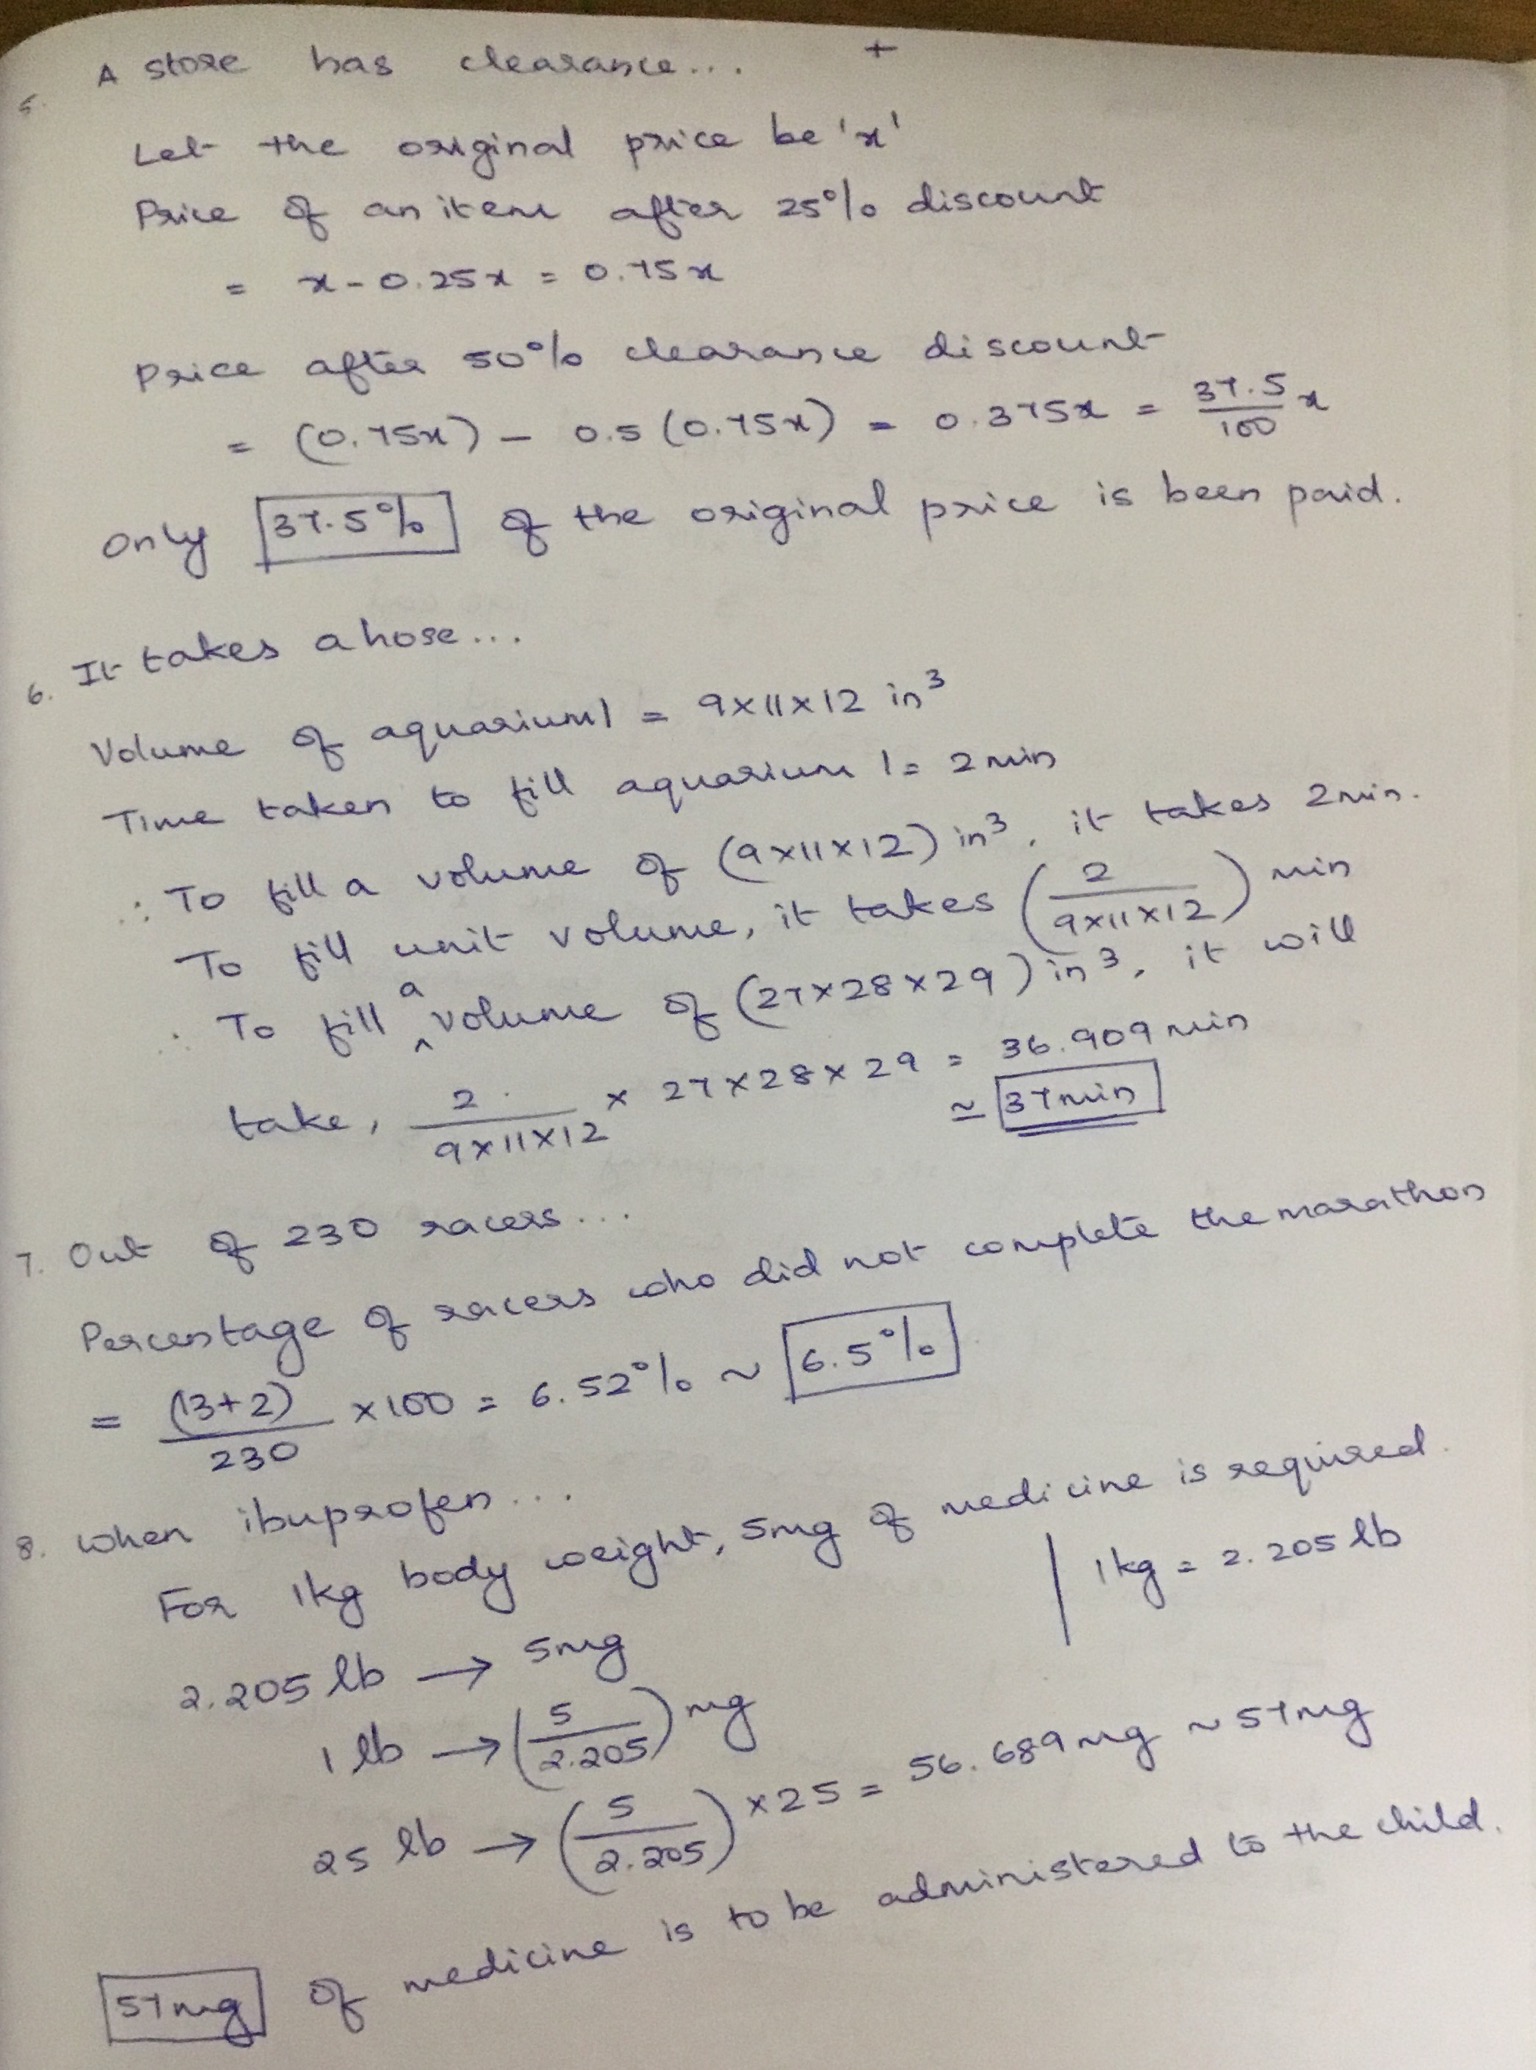 5. A store has clearance... +
Let the original price be 'x'
Price of an item after 25% discount
= x - 0.25x = 0.75x
Price after 50% clearance discount
= (0.75x) - 0.5 (0.75x) = 0.375x = 37.5/100 x
Only 37.5% of the original price is been paid.
6. It takes a hose...
Volume of aquarium 1 = 9x11x12 in³
Time taken to fill aquarium 1 = 2 min
∴ To fill a volume of (9x11x12) in³, it takes 2 min.
To fill unit volume, it takes (2/9x11x12) min
∴ To fill a volume of (27x28x29) in³, it will
take, 2/9x11x12 x 27x28x29 = 36.909 min
≃ 37 min
7. Out of 230 racers...
Percentage of racers who did not complete the marathon
= (13+2)/230 x 100 = 6.52% ~ 6.5%
8. When ibuprofen...
For 1kg body weight, 5mg of medicine is required.
2.205 lb → 5mg | 1kg = 2.205 lb
1 lb → (5/2.205) mg
25 lb → (5/2.205) x 25 = 56.689 mg ~ 57mg
57mg of medicine is to be administered to the child.